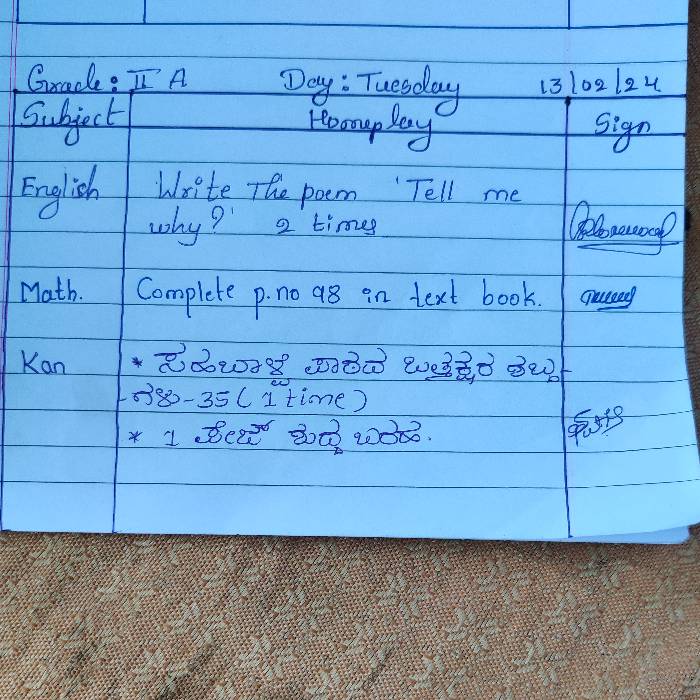 Grade: II A Day: Tuesday 13/02/24
Subject Homeplay Sign
English Write The poem 'Tell me
why?' 2 times
Math. Complete p.no 98 in text book.
Kan * ಸಹಬಾಳ್ವೆ ಪಾಠದ ಒತ್ತಕ್ಷರ ಶಬ್ದ-
-ಗಳು-35 (1 time)
* 1 ಪೇಜ್ ಶುದ್ಧ ಬರಹ.